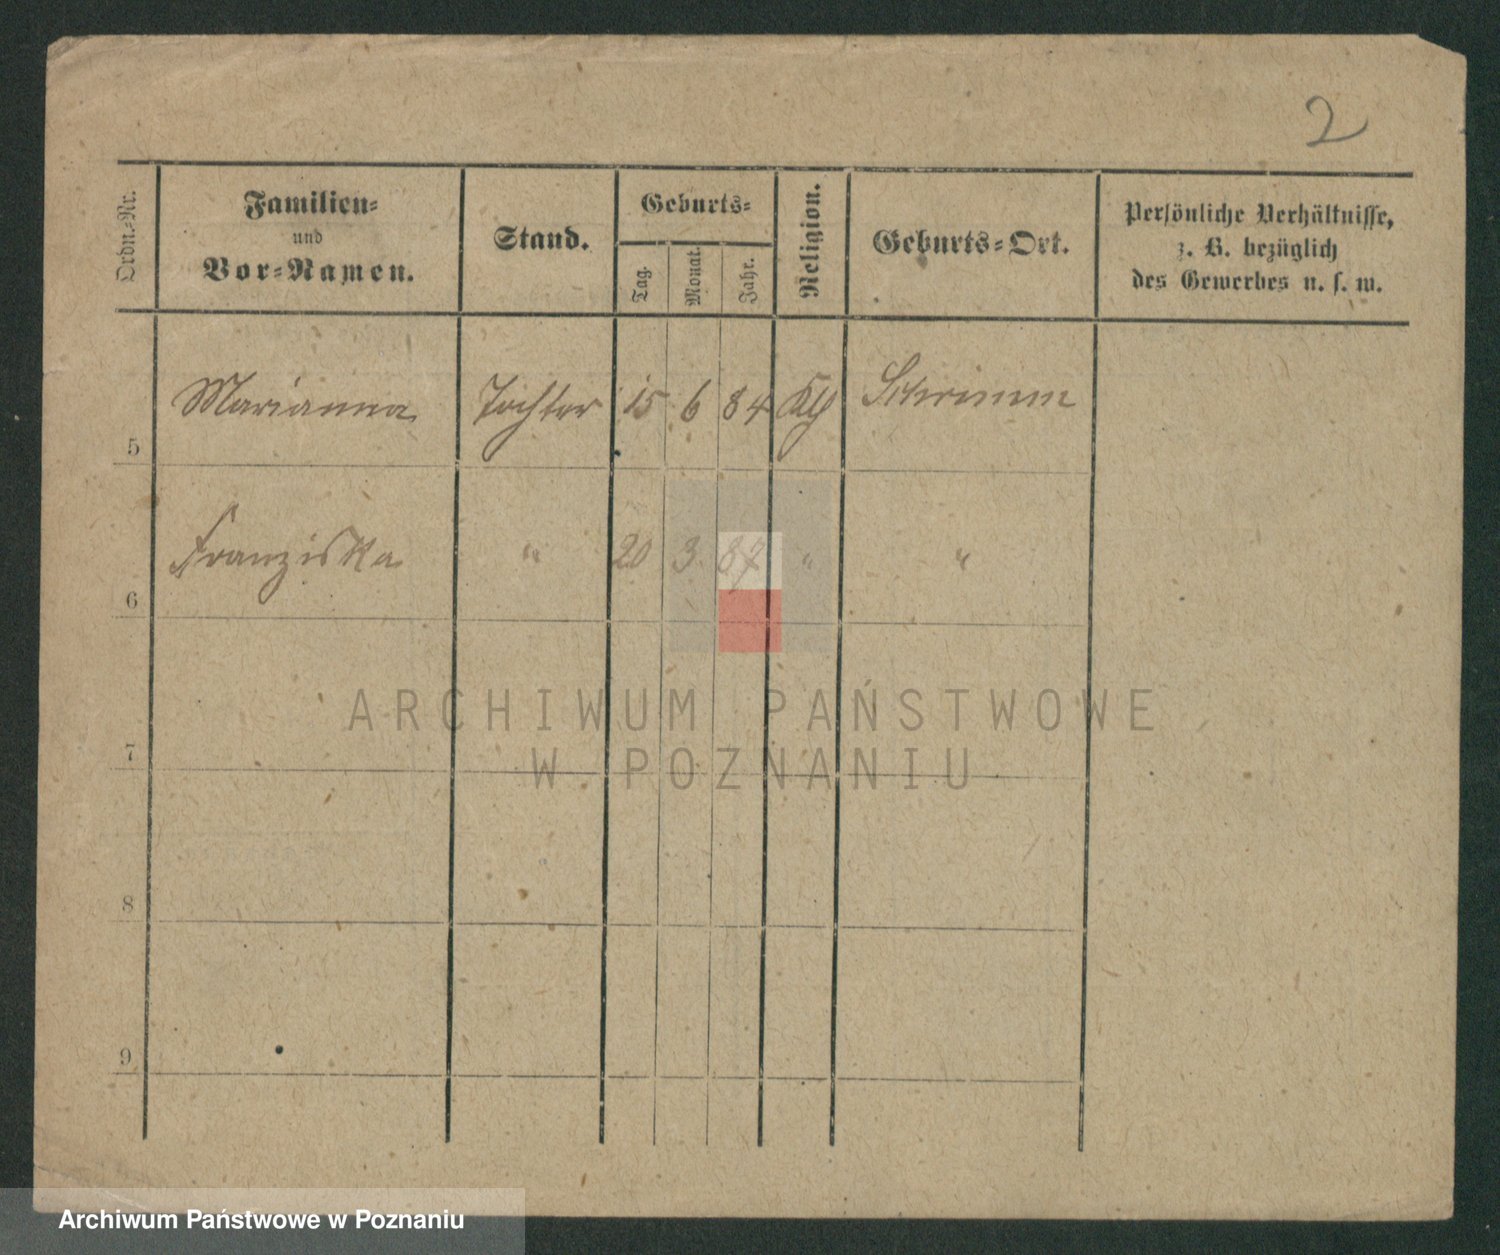 2
Ordn.-Nr.
Familien-
und
Vor-Namen.
Stand.
Geburts-
Tag.
Monat.
Jahr.
Religion.
Geburts-Ort.
Persönliche Verhältnisse,
z. B. bezüglich
des Gewerbes u. s. w.
5 Marianna Tochter 15 6 84 Kth Schrimm
6 Franziska " 20 3 87 " "
7
8
9
ARCHIWUM PAŃSTWOWE
W POZNANIU
Archiwum Państwowe w Poznaniu